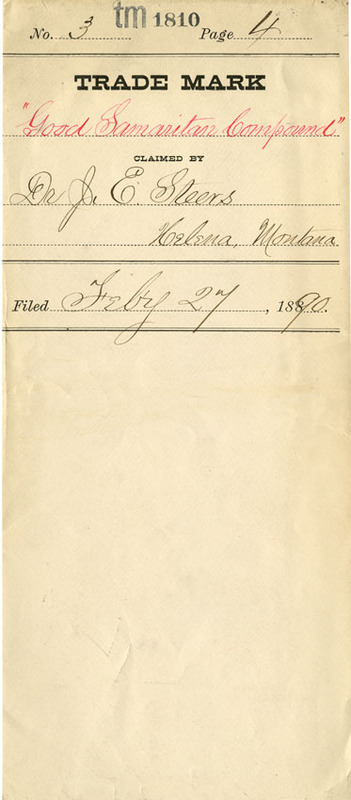 tm 1810
No. 3 Page 4
TRADE MARK
"Good Samaritan Compound"
CLAIMED BY
Dr J. E Steers
Helena, Montana
Filed Feb'y 27, 1890.